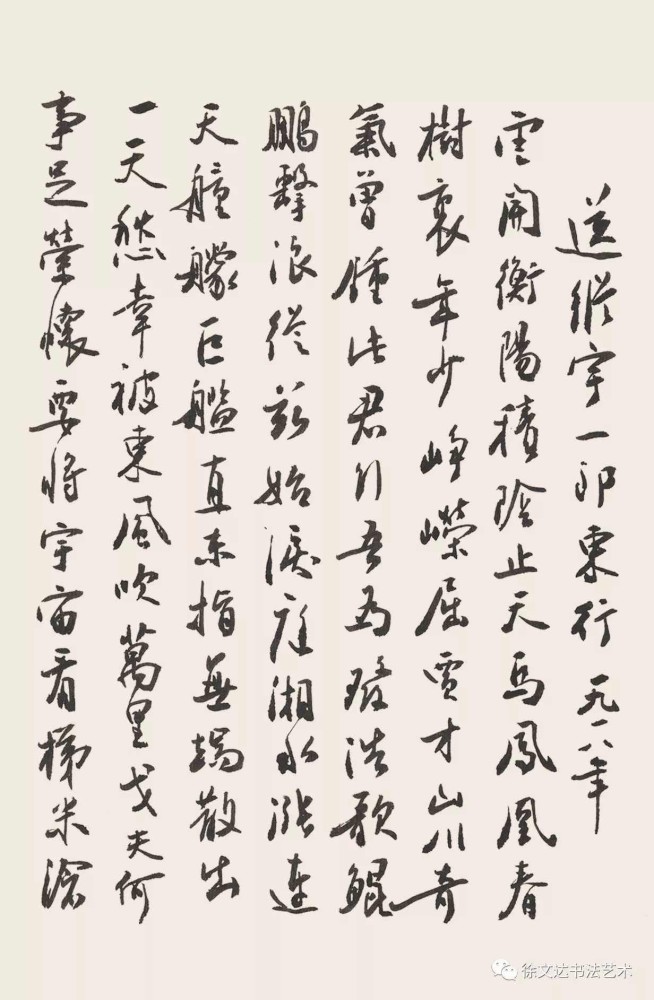 送縱宇一郎東行 一九一八年
雲開衡陽積陰止天馬鳳凰春
樹裏年少崢嶸屈賈才山川奇
氣曾鍾此君行吾為發浩歌鯤
鵬擊浪從茲始洞庭湘水漲連
天艟艨巨艦直東指無端散出
一天愁幸被東風吹萬里丈夫何
事足縈懷要將宇宙看稊米滄
徐文达书法艺术